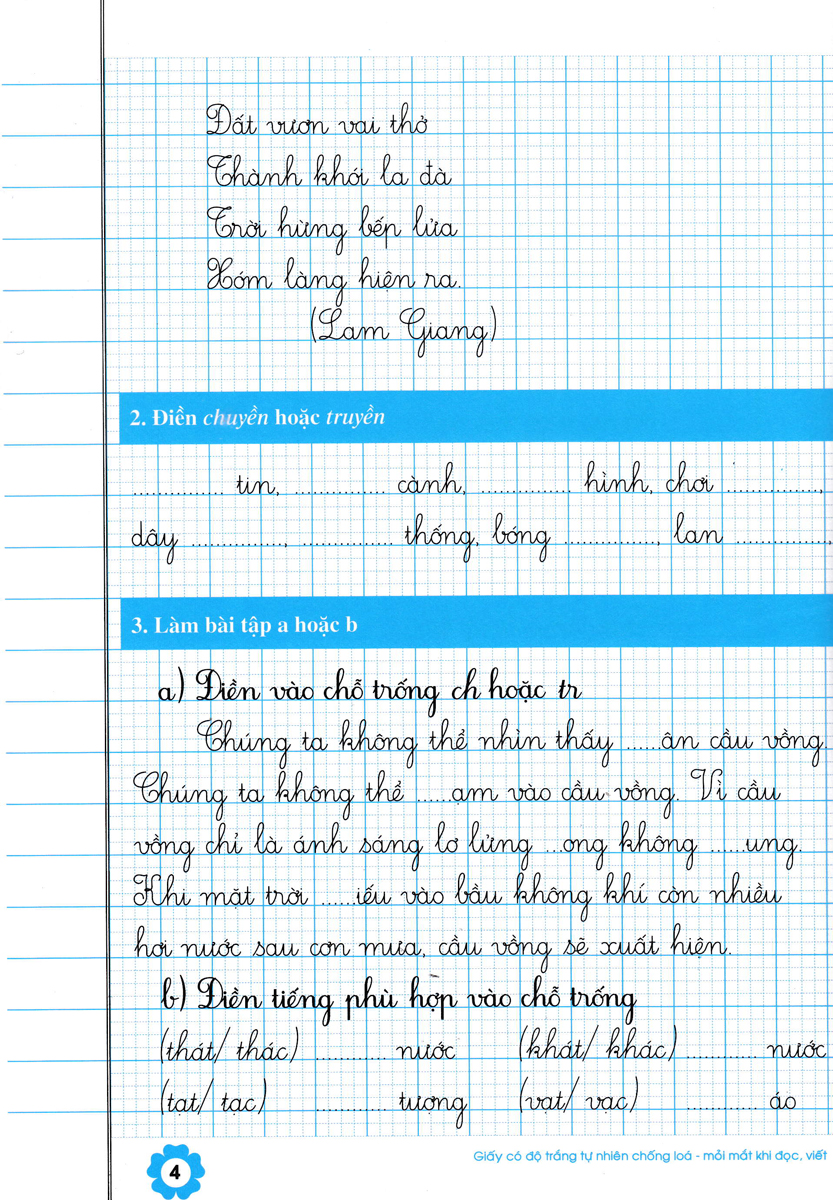 Đất vươn vai thở
Thành khói la đà
Trời hừng bếp lửa
Xóm làng hiện ra.
(Lam Giang)
2. Điền chuyền hoặc truyền
.............. tin, .............. cành, .............. hình, chơi ..............,
dây .............., .............. thống, bóng .............., lan ..............,
3. Làm bài tập a hoặc b
a) Điền vào chỗ trống ch hoặc tr
Chúng ta không thể nhìn thấy .....ân cầu vồng.
Chúng ta không thể .....ạm vào cầu vồng. Vì cầu
vồng chỉ là ánh sáng lơ lửng ...ong không .....ung.
Khi mặt trời .....iếu vào bầu không khí còn nhiều
hơi nước sau cơn mưa, cầu vồng sẽ xuất hiện.
b) Điền tiếng phù hợp vào chỗ trống
(thát/ thác) ........... nước (khát/ khác) ........... nước
(tạt/ tạc) ........... tượng (vạt/ vạc) ........... áo
4 Giấy có độ trắng tự nhiên chống loá - mỏi mắt khi đọc, viết